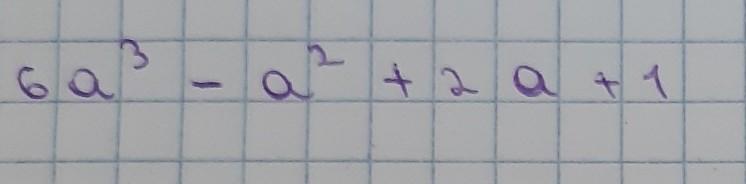 6a³ - a² + 2a + 1